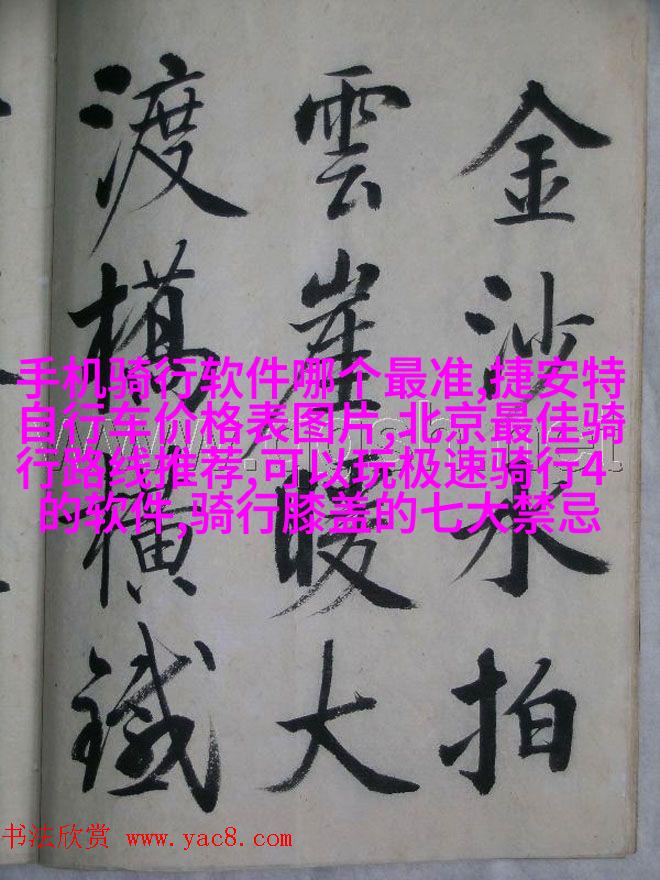 金沙水拍
雲崖暖大
渡橋横鐵
手机骑行软件哪个最准,捷安特
自行车价格表图片,北京最佳骑
行路线推荐,可以玩极速骑行4
的软件,骑行膝盖的七大禁忌
书法欣赏 www.yac8.com